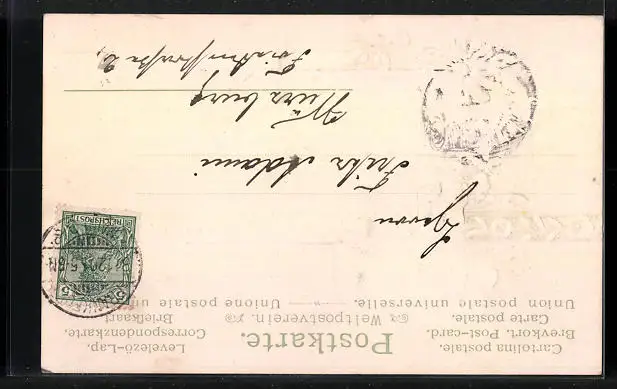 Postkarte.
Weltpostverein. Union postale universelle.
Cartolina postale.
Brevkort. Post-card.
Carte postale.
Union postale universelle.
Levelező-Lap.
Correspondenzkarte.
Briefkaart
Unione postale
Herrn
Fritz Adami
Würzburg
REICHSPOST
5